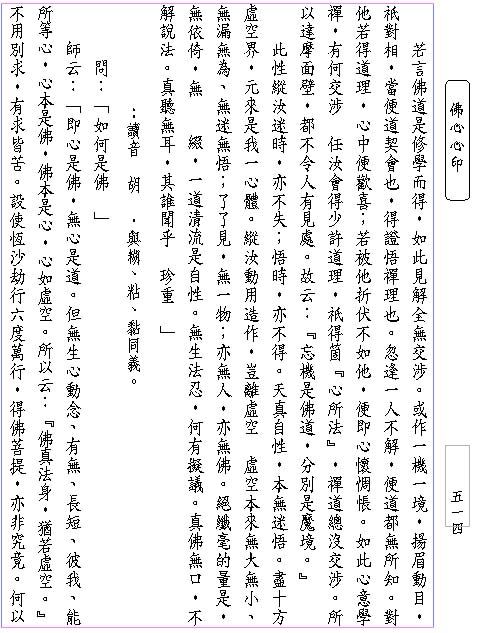 佛心心印
五一四
若言佛道是修學而得，如此見解全無交涉。或作一機一境，揚眉動目，
祇對相，當便道契會也，得證悟禪理也。忽逢一人不解，便道都無所知。對
他若得道理，心中便歡喜；若被他折伏不如他，便即心懷惆悵。如此心意學
禪，有何交涉　任汝會得少許道理，祇得箇『心所法』，禪道總沒交涉。所
以達摩面壁，都不令人有見處。故云：『忘機是佛道，分別是魔境。』
此性縱汝迷時，亦不失；悟時，亦不得。天真自性，本無迷悟。盡十方
虛空界，元來是我一心體　縱汝動用造作，豈離虛空　虛空本來無大無小、
無漏無為、無迷無悟；了了見，無一物；亦無人，亦無佛。絕纖毫的量是，
無依倚，無　綴，一道清流是自性。無生法忍，何有擬議。真佛無口，不
解說法。真聽無耳，其誰聞乎　珍重　」
：讀音　胡　，與糊、粘、黏同義。
問：「如何是佛　」
師云：「即心是佛，無心是道。但無生心動念、有無、長短、彼我、能
所等心，心本是佛，佛本是心，心如虛空。所以云：『佛真法身，猶若虛空。』
不用別求，有求皆苦。設使恆沙劫行六度萬行，得佛菩提，亦非究竟。何以